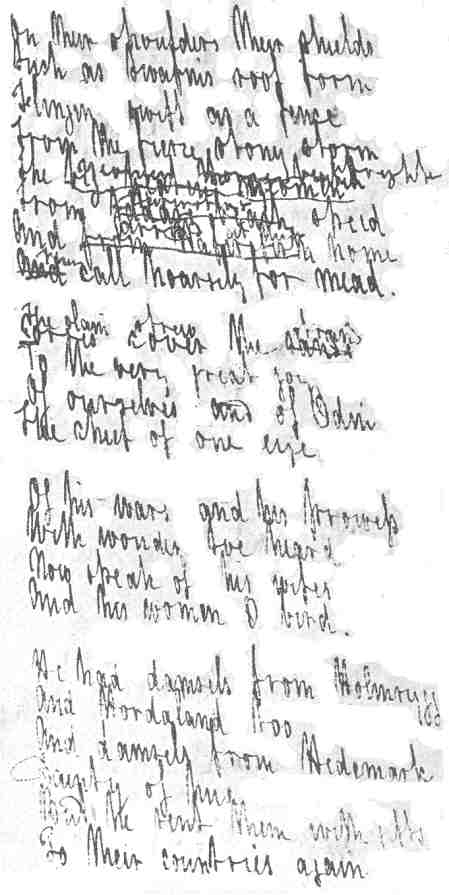 On their shoulders their shields
Such as Swafnis roof form
Flinging swift as a fence
From the fierce stony storm
The
From speed
And home
And call hoarsely for mead.
The slain strew cover the
To the very great joy
Of ourselves and of Odin
The chief of one eye.
Of his wars and his prowess
With wonder I've heard
Now speak of his wives
And his women O bird.
He had damsels from Holmrygg
And Hordaland too
And damsels from Hedemark
of hue
he sent them with gifts
To their countries again